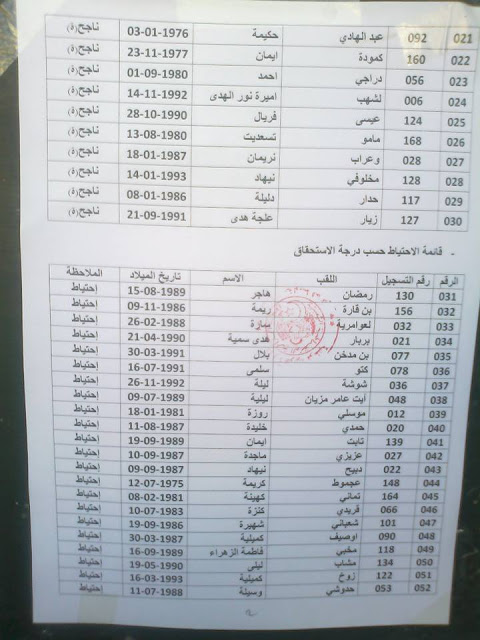 021 092 عبد الهادي حكيمة 03-01-1976 ناجح(ة)
022 160 كمودة ايمان 23-11-1977 ناجح(ة)
023 056 دراجي احمد 01-09-1980 ناجح(ة)
024 006 لشهب اميرة نور الهدى 14-11-1992 ناجح(ة)
025 124 عيسى فريال 28-10-1990 ناجح(ة)
026 168 مامو تسعديت 13-08-1980 ناجح(ة)
027 028 وعراب نريمان 18-01-1987 ناجح(ة)
028 128 مخلوفي نيهاد 14-01-1993 ناجح(ة)
029 117 حدار دليلة 08-01-1986 ناجح(ة)
030 127 زيار علجة هدى 21-09-1991 ناجح(ة)
- قائمة الاحتياط حسب درجة الاستحقاق
الرقم رقم التسجيل اللقب الاسم تاريخ الميلاد الملاحظة
031 130 رمضان هاجر 15-08-1989 إحتياط
032 156 بن قارة ريمة 09-11-1986 إحتياط
033 032 لعوامرية سارة 26-02-1988 إحتياط
034 021 بربار هدى سمية 21-04-1990 إحتياط
035 077 بن مدخن بلال 30-03-1991 إحتياط
036 078 كتو سلمى 16-07-1991 إحتياط
037 036 شوشة ليلة 26-11-1992 إحتياط
038 048 آيت عامر مزيان ليلية 09-07-1989 إحتياط
039 012 موسلي روزة 18-01-1981 إحتياط
040 020 حمدي خليدة 11-08-1987 إحتياط
041 139 تابت ايمان 19-09-1989 إحتياط
042 027 عزيزي ماجدة 10-09-1987 إحتياط
043 022 دبيح نيهاد 09-09-1987 إحتياط
044 148 عجموط كريمة 12-07-1975 إحتياط
045 164 تماني كهينة 08-02-1981 إحتياط
046 066 فريدي كنزة 10-07-1983 إحتياط
047 101 شعباني شهيرة 19-09-1986 إحتياط
048 090 اوصيف كميلية 30-03-1987 إحتياط
049 118 مخبي فاطمة الزهراء 16-09-1989 إحتياط
050 134 مشاب ليلى 19-05-1990 إحتياط
051 122 زوخ كميلية 16-03-1993 إحتياط
052 053 حدوشي وسيلة 11-07-1988 إحتياط